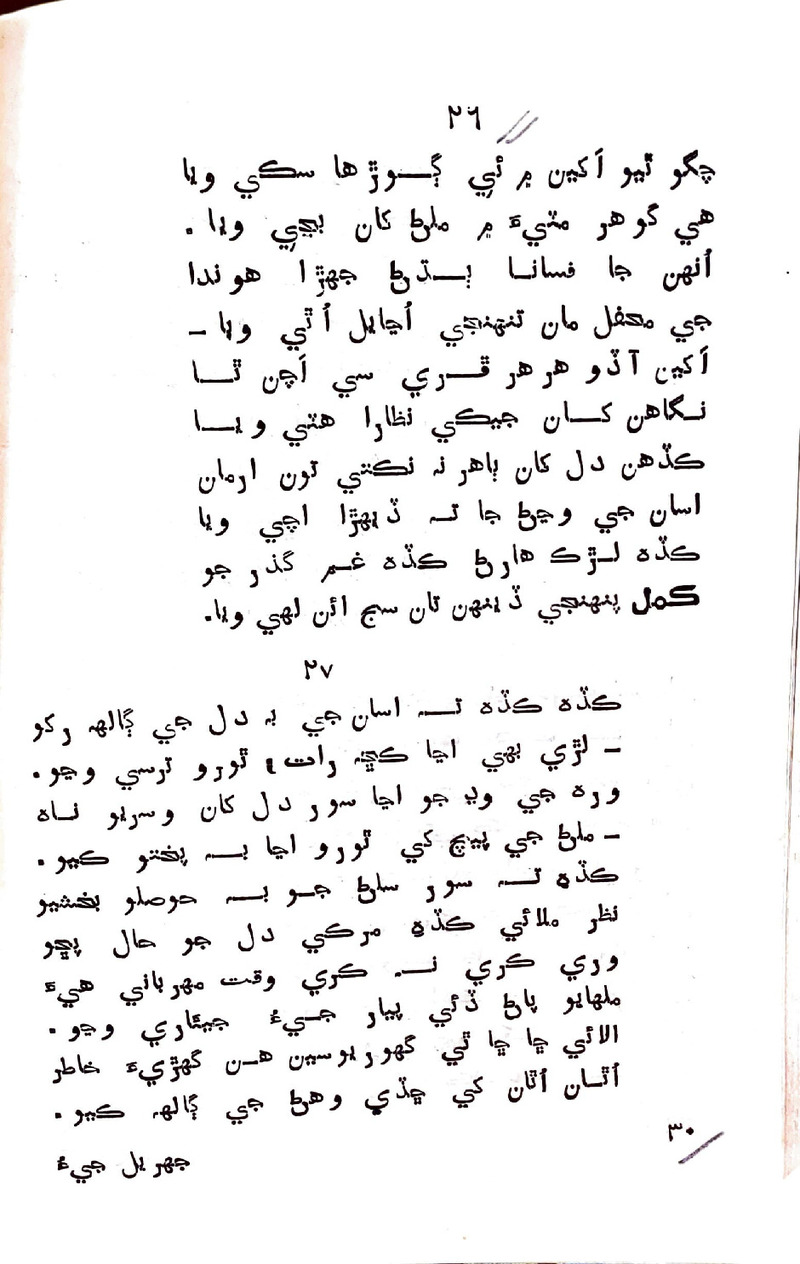 ٢٦
چڱو ٿيو اَکين ۾ ئي ڳوڙها سڪي ويا
هي گوهر مٽيءَ ۾ ملڻ کان بچي ويا.
اُنهن جا فسانا ٻڌڻ جهڙا هوندا
جي محفل مان تنهنجي اُڃايل اُٿي ويا ـ
اَکين آڏو هر هر ڦري سي اَچن ٿا
نگاهن کان جيڪي نظارا هٽي ويا
ڪڏهن دل کان ٻاهر نہ نڪتي تون ارمان
اسان جي وڃڻ جا تہ ڏيهڙا اچي ويا
ڪڏه لڙڪ هارڻ ڪڏه غم گذر جو
ڪمل پنهنجي ڏينهن تان سج ائن لهي ويا.
٢٧
ڪڏه ڪڏه تہ اسان جي بہ دل جي ڳالهہ رکو
ـ لڙي بهي اڃا ڪٿہ رات، ٿورو ترسي وڃو.
وره جي وڍ جو اڃا سور دل کان وسريو ناه
ـ ملڻ جي پيچ کي ٿورو اڃا بہ پختو ڪيو.
ڪڏه تہ سور سلڻ جو بہ حوصلو بخشيو
نظر ملائي ڪڏه مرڪي دل جو حال پڇو
وري ڪري نہ ڪري وقت مهرباني هيءَ
ملهايو پاڻ ڏئي پيار جيءُ جيئاري وڃو.
الائي ڇا ڇا ٿي گهوريوسين هن گهڙيءَ خاطر
اُٿان اُٿان کي ڇڏي وهڻ جي ڳالهہ ڪيو.
٣٠
جهريل جيءُ